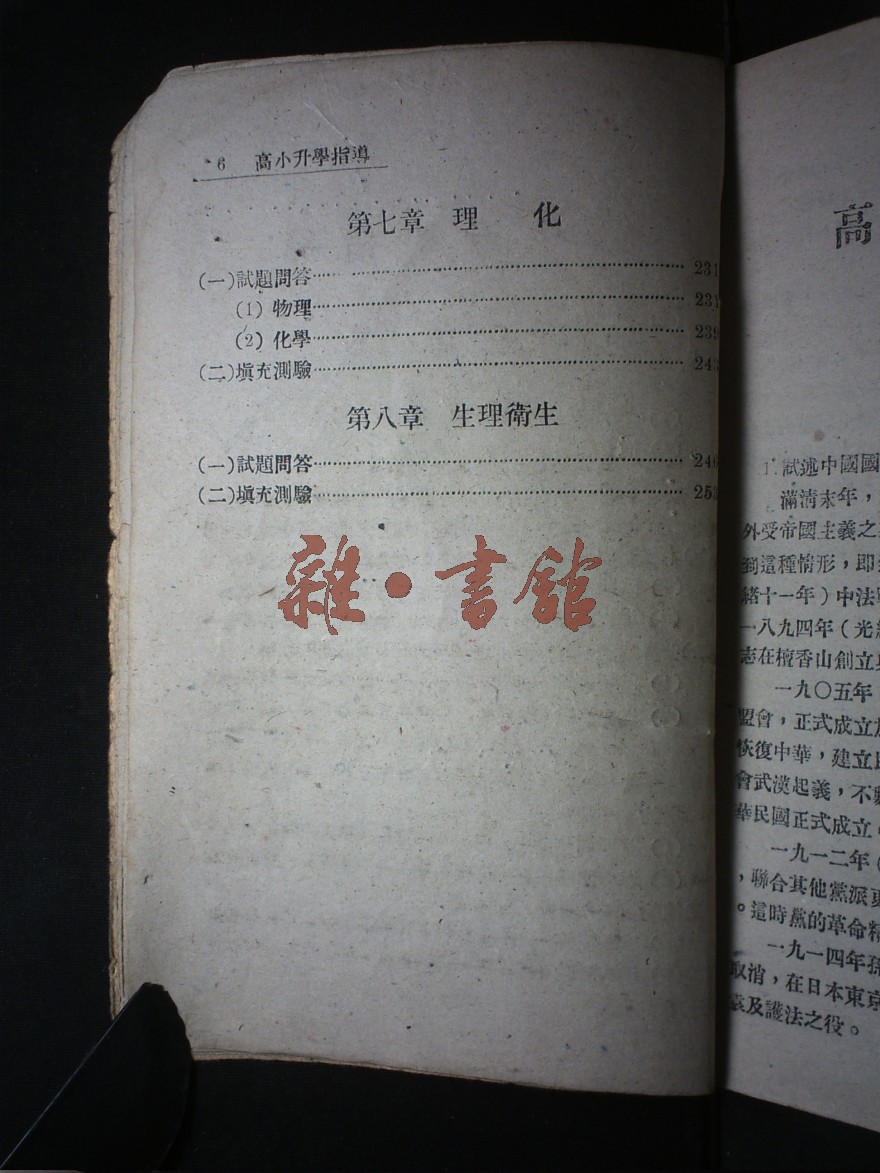 6 高小升學指導
第七章 理 化
(一)試題問答 231
(1) 物理 231
(2) 化學 239
(二)填充測驗 243
第八章 生理衛生
(一)試題問答 246
(二)填充測驗 253
雜·書館
高
1. 試述中國國
滿清末年，
外受帝國主義之
到這種情形，即
緒十一年）中法
一八九四年（光
志在檀香山創立
一九〇五年
盟會，正式成立
恢復中華，建立
會武漢起義，不
華民國正式成立
一九一二年（
，聯合其他黨派
。這時黨的革命精
一九一四年孫
取消，在日本東京
袁及護法之役。